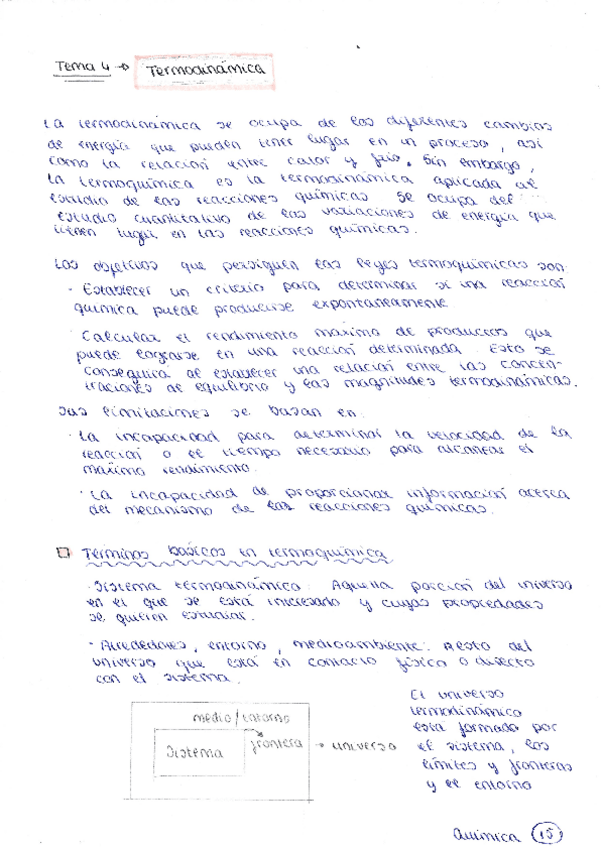 Tema 4 → Termodinámica
La termodinámica se ocupa de los diferentes cambios
de energía que pueden tener lugar en un proceso, así
como la relación entre calor y frío. Sin embargo,
la termoquímica es la termodinámica aplicada al
estudio de las reacciones químicas. Se ocupa del
estudio cuantitativo de las variaciones de energía que
tienen lugar en las reacciones químicas.
Los objetivos que persiguen las leyes termoquímicas son
· Establecer un criterio para determinar si una reacción
química puede producirse expontáneamente.
· Calcular el rendimiento máximo de productos que
puede lograrse en una reacción determinada. Esto se
conseguirá al establecer una relación entre las concen-
traciones de equilibrio y las magnitudes termodinámicas.
Sus limitaciones se basan en:
· La incapacidad para determinar la velocidad de la
reacción o el tiempo necesario para alcanzar el
máximo rendimiento.
· La incapacidad de proporcionar información acerca
del mecanismo de las reacciones químicas.
Términos básicos en termoquímica
· Sistema termodinámico: Aquella porción del universo
en el que se está interesado y cuyas propiedades
se quieren estudiar.
· Alrededores, entorno, medioambiente: Resto del
universo que está en contacto físico o directo
con el sistema.
medio/entorno
Sistema
frontera → universo
El universo
termodinámico
está formado por
el sistema, los
límites y fronteras
y el entorno
Química 15